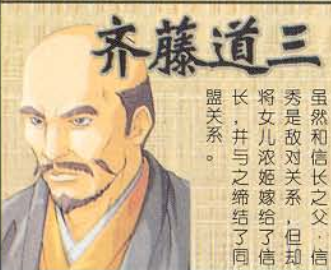 齐藤道三
虽然和信长之父·信
秀是敌对关系，但却
将女儿浓姬嫁给了信
长，并与之缔结了同
盟关系。